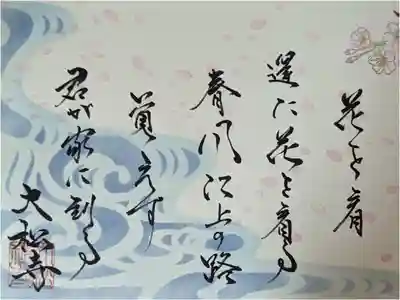 花を看
還に花を看る
春風江上の路
覚えず
君が家に到る
大松寺